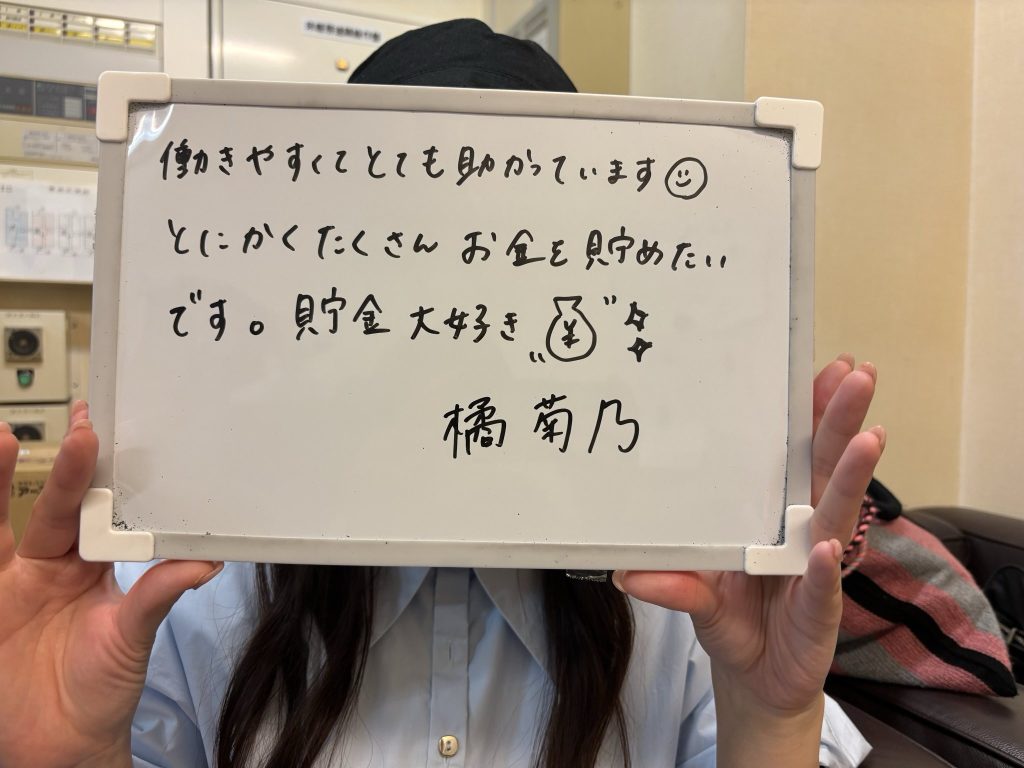 働きやすくてとても助かっています
とにかくたくさん お金を貯めたい
です。貯金 大好き ¥
橘 菊乃